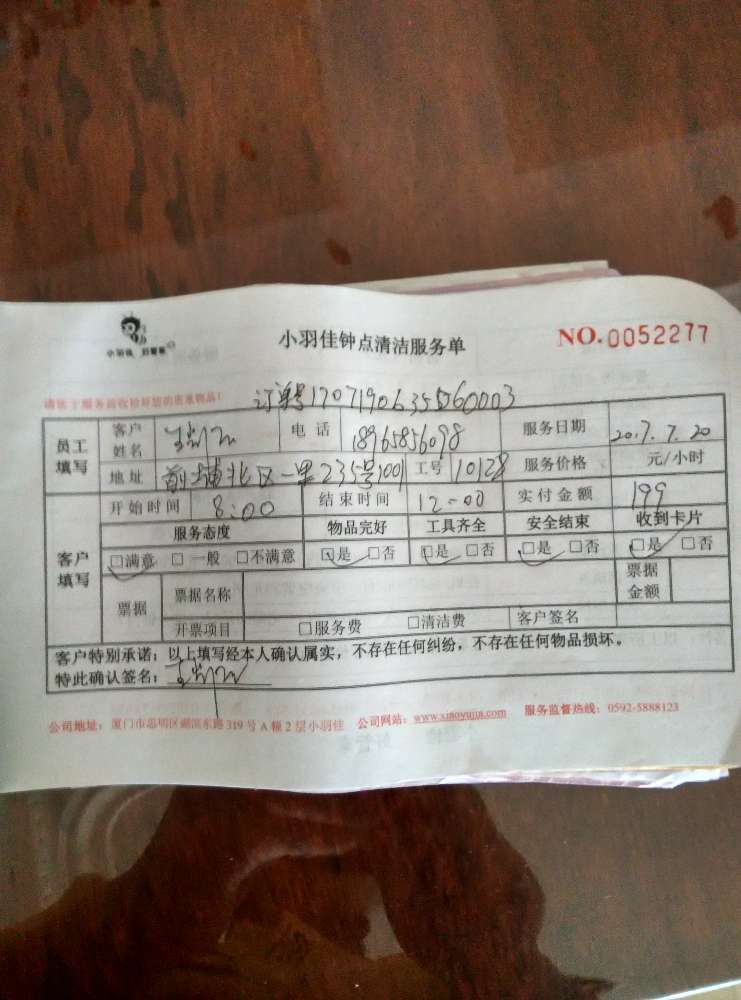 小羽佳 好管家
小羽佳钟点清洁服务单
NO.0052277
订单号17071906355060003
员工填写
客户姓名
电话 18965856098
服务日期 2017.7.20
地址 前埔北区一里235号1001
工号 10128
服务价格 元/小时
客户填写
开始时间 8:00
结束时间 12-00
实付金额 199
服务态度 物品完好 工具齐全 安全结束 收到卡片
□满意 □一般 □不满意 □是 □否 □是 □否 □是 □否 □是 □否
票据
票据名称
票据金额
开票项目 □服务费 □清洁费 客户签名
客户特别承诺：以上填写经本人确认属实，不存在任何纠纷，不存在任何物品损坏。
特此确认签名：
公司地址：厦门市思明区湖滨东路319号A幢2层小羽佳 公司网站：www.xiaoyujia.com 服务监督热线：0592-5888123